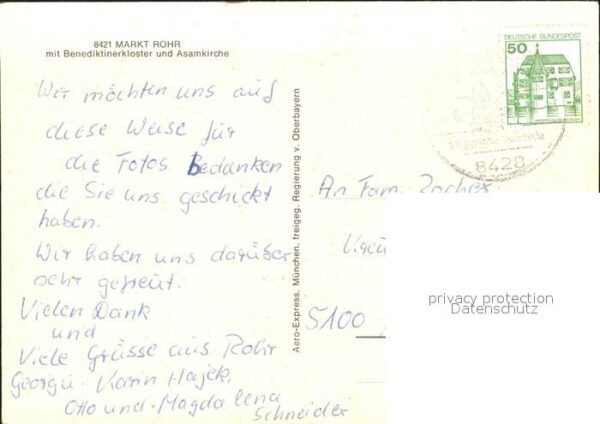 8421 MARKT ROHR
mit Benediktinerkloster und Asamkirche
Wir möchten uns auf
diese Weise für
die Fotos Bedanken
die Sie uns geschickt
haben.
Wir haben uns darüber
sehr gefreut.
Vielen Dank
und
Viele Grüsse aus Rohr
Georg u. Karin Hajek,
Otto und Magdalena
Schneider
Aero-Express, München, freigeg. Regierung v. Oberbayern
DEUTSCHE BUNDESPOST
50
8420
An Fam.
5100
privacy protection
Datenschutz